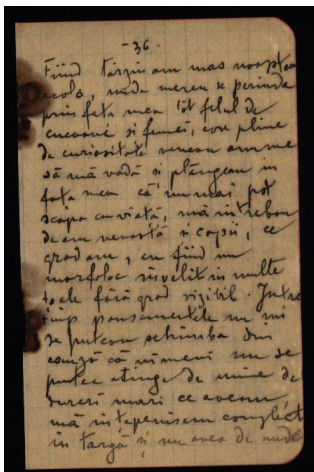 - 36 -
Fiind târziu am mas noaptea
acolo, unde mereu se perinda
prin fața mea tot felul de
cucoane și femei, care pline
de curiozitate veneau anume
să mă vadă și plângeau în
fața mea că nu mai pot
scăpa cu viață, mă întrebau
de am nevastă și copii, ce
grad am, eu fiind un
morfoloc învelit în multe
toale fără grad vizibil. Între
timp pansamentele nu mi
se puteau schimba din
cauză că nimeni nu se
putea atinge de mine de
dureri mari ce aveam,
mă înțepenisem complect
în targă și nu avea de unde